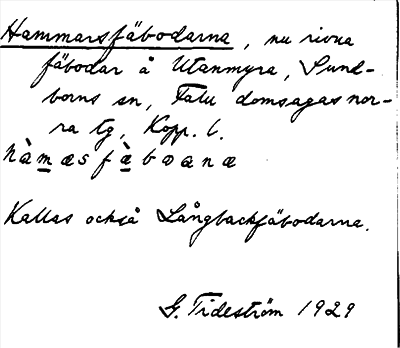 Hammarsfäbodarna, nu rivna
fäbodar å Utanmyra, Sund-
borns sn, Falu domsagas nor-
ra tg, Kopp. l.
hàmæsfæ̀bɷanæ
Kallas också Långbackfäbodarna.
G. Tideström 1929